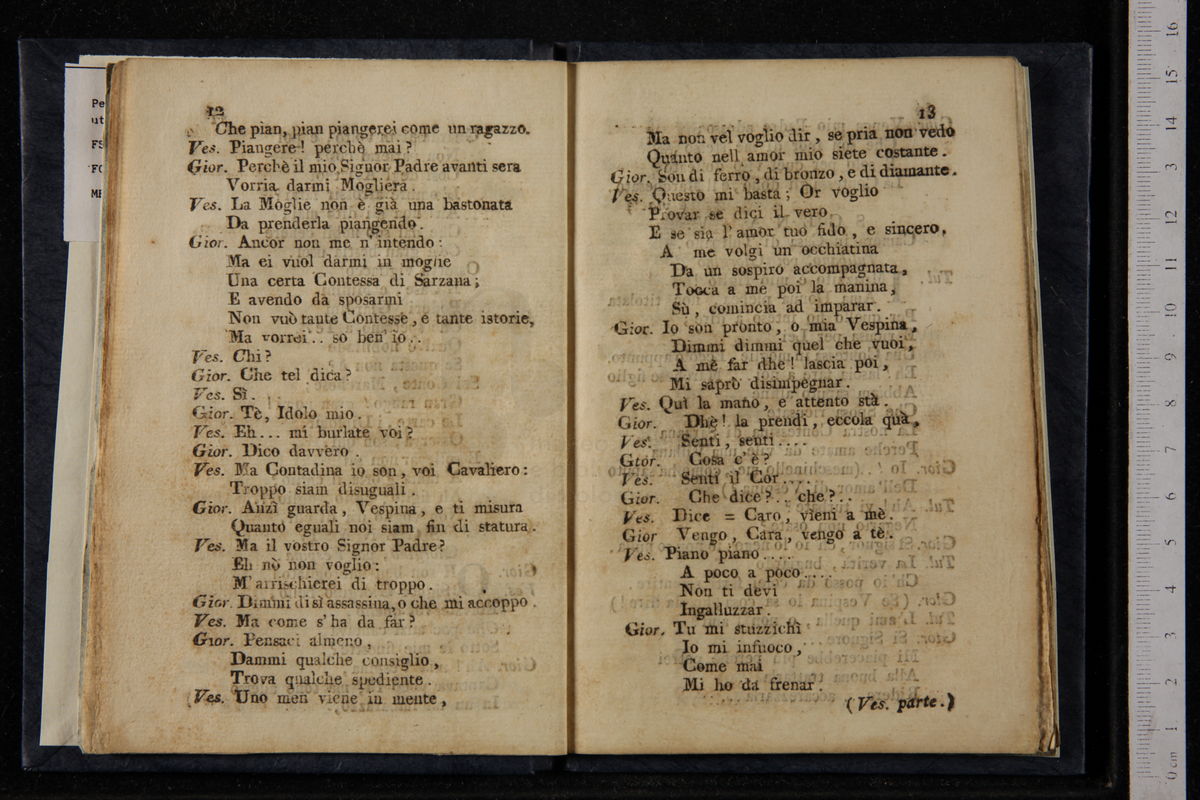 12
Che pian, pian piangerei come un ragazzo.
Ves. Piangere! perchè mai?
Gior. Perchè il mio Signor Padre avanti sera
Vorria darmi Mogliera.
Ves. La Moglie non è già una bastonata
Da prenderla piangendo.
Gior. Ancor non me n' intendo:
Ma ei vuol darmi in moglie
Una certa Contessa di Sarzana;
E avendo da sposarmi
Non vuò tante Contesse, e tante istorie,
Ma vorrei.. so ben' io..
Ves. Chi?
Gior. Che tel dica?
Ves. Sì.
Gior. Tè, Idolo mio.
Ves. Eh... mi burlate voi?
Gior. Dico davvero.
Ves. Ma Contadina io son, voi Cavaliero:
Troppo siam disuguali.
Gior. Anzì guarda, Vespina, e ti misura
Quanto eguali noi siam fin di statura.
Ves. Ma il vostro Signor Padre?
Eh nò non voglio:
M' arrischierei di troppo.
Gior. Dimmi di sì assassina, o che mi accoppo.
Ves. Ma come s' ha da far?
Gior. Pensaci almeno,
Dammi qualche consiglio,
Trova qualche spediente.
Ves. Uno men viene in mente,
13
Ma non vel voglio dir, se pria non vedo
Quanto nell amor mio siete costante.
Gior. Son di ferro, di bronzo, e di diamante.
Ves. Questo mi basta; Or voglio
Provar se dici il vero
E se sia l' amor tuo fido, e sincero.
A me volgi un occhiatina
Da un sospiro accompagnata,
Tocca a me poi la manina,
Sù, comincia ad imparar.
Gior. Io son pronto, o mia Vespina,
Dimmi dimmi quel che vuoi,
A mè far dhe! lascia poi,
Mi saprò disimpegnar.
Ves. Quì la mano, e attento stà.
Gior. Dhè! la prendi, eccola quà,
Ves. Senti, senti....
Gtor. Cosa c' è?
Ves. Senti il Cor....
Gior. Che dice?.. che?..
Ves. Dice = Caro, vieni a mè.
Gior Vengo, Cara, vengo a tè.
Ves. Piano piano.....
A poco a poco....
Non ti devi
Ingalluzzar.
Gior. Tu mi stuzzichi
Io mi infuoco,
Come mai
Mi ho da frenar.
(Ves. parte.)